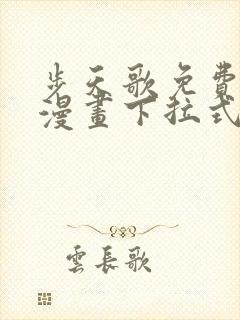 步天歌免費
漫畫下拉式
雲長歌